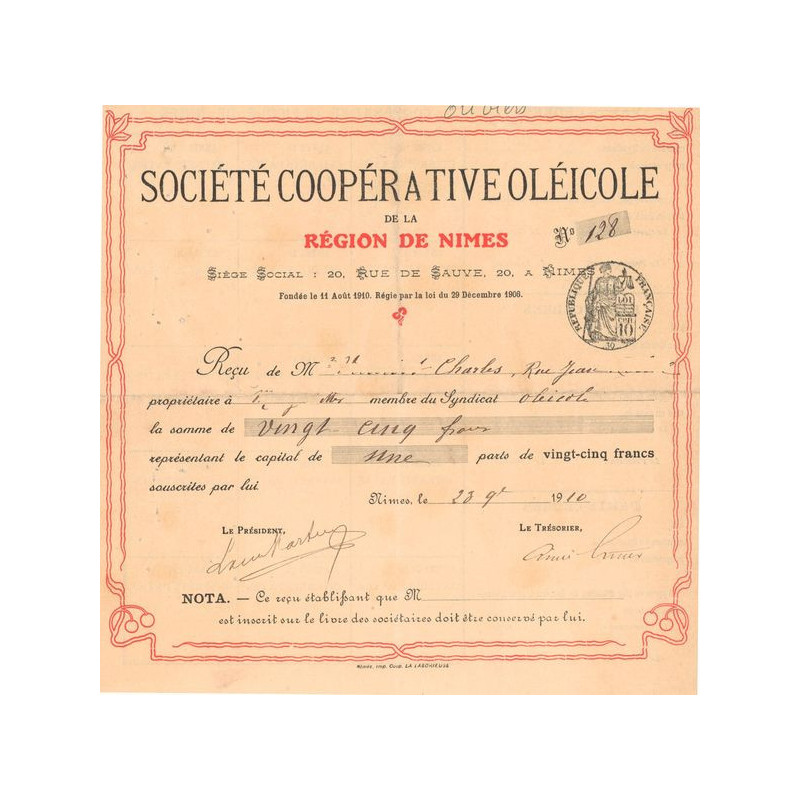 oliviers
SOCIÉTÉ COOPÉRATIVE OLÉICOLE
DE LA
RÉGION DE NIMES
No 128
SIÈGE SOCIAL : 20, RUE DE SAUVE, 20, A NIMES
Fondée le 11 Août 1910. Régie par la loi du 29 Décembre 1906.
RÉPUBLIQUE FRANÇAISE
LOI
10
Reçu de M Charles, Rue Jean
propriétaire à membre du Syndicat oléicole
la somme de vingt cinq francs
représentant le capital de une parts de vingt-cinq francs
souscrites par lui
Nimes, le 23 9e 1910
LE PRÉSIDENT, LE TRÉSORIER,
NOTA. — Ce reçu établissant que M
est inscrit sur le livre des sociétaires doit être conservé par lui.
Nimes, Imp. Coop. LA LABORIEUSE